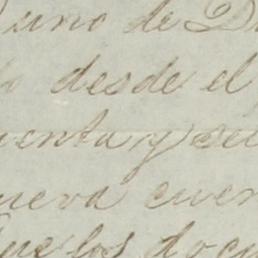 uno de D
desde el
uenta y sei
nueva cuen
que los docu